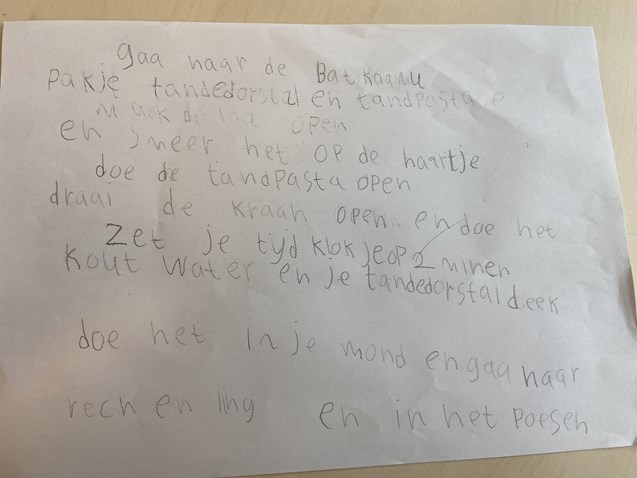 gaa naar de Bat kaamu
pak je tandedorstal en tandpasta
maak de laa open
en smeer het op de haartje
doe de tandpasta open
draai de kraan open.. en doe het
Zet je tijd klokje op 2 minen
kout water en je tandedorstal deek
doe het in je mond en gaa naar
rech en ling en in het poesen